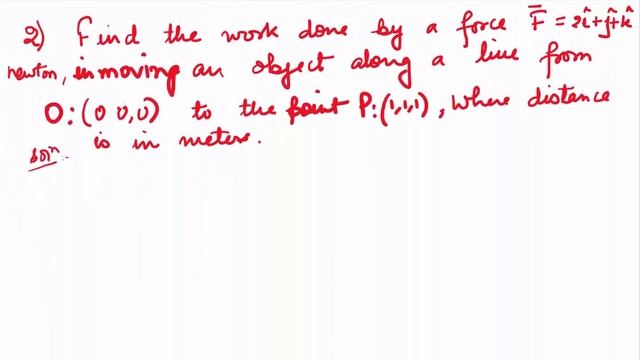 2) Find the work done by a force F̅ = 2î+ĵ+k̂
newton, in moving an object along a line from
O:(0 0,0) to the point P:(1,1,1), where distance
is in meters.
Solⁿ:-